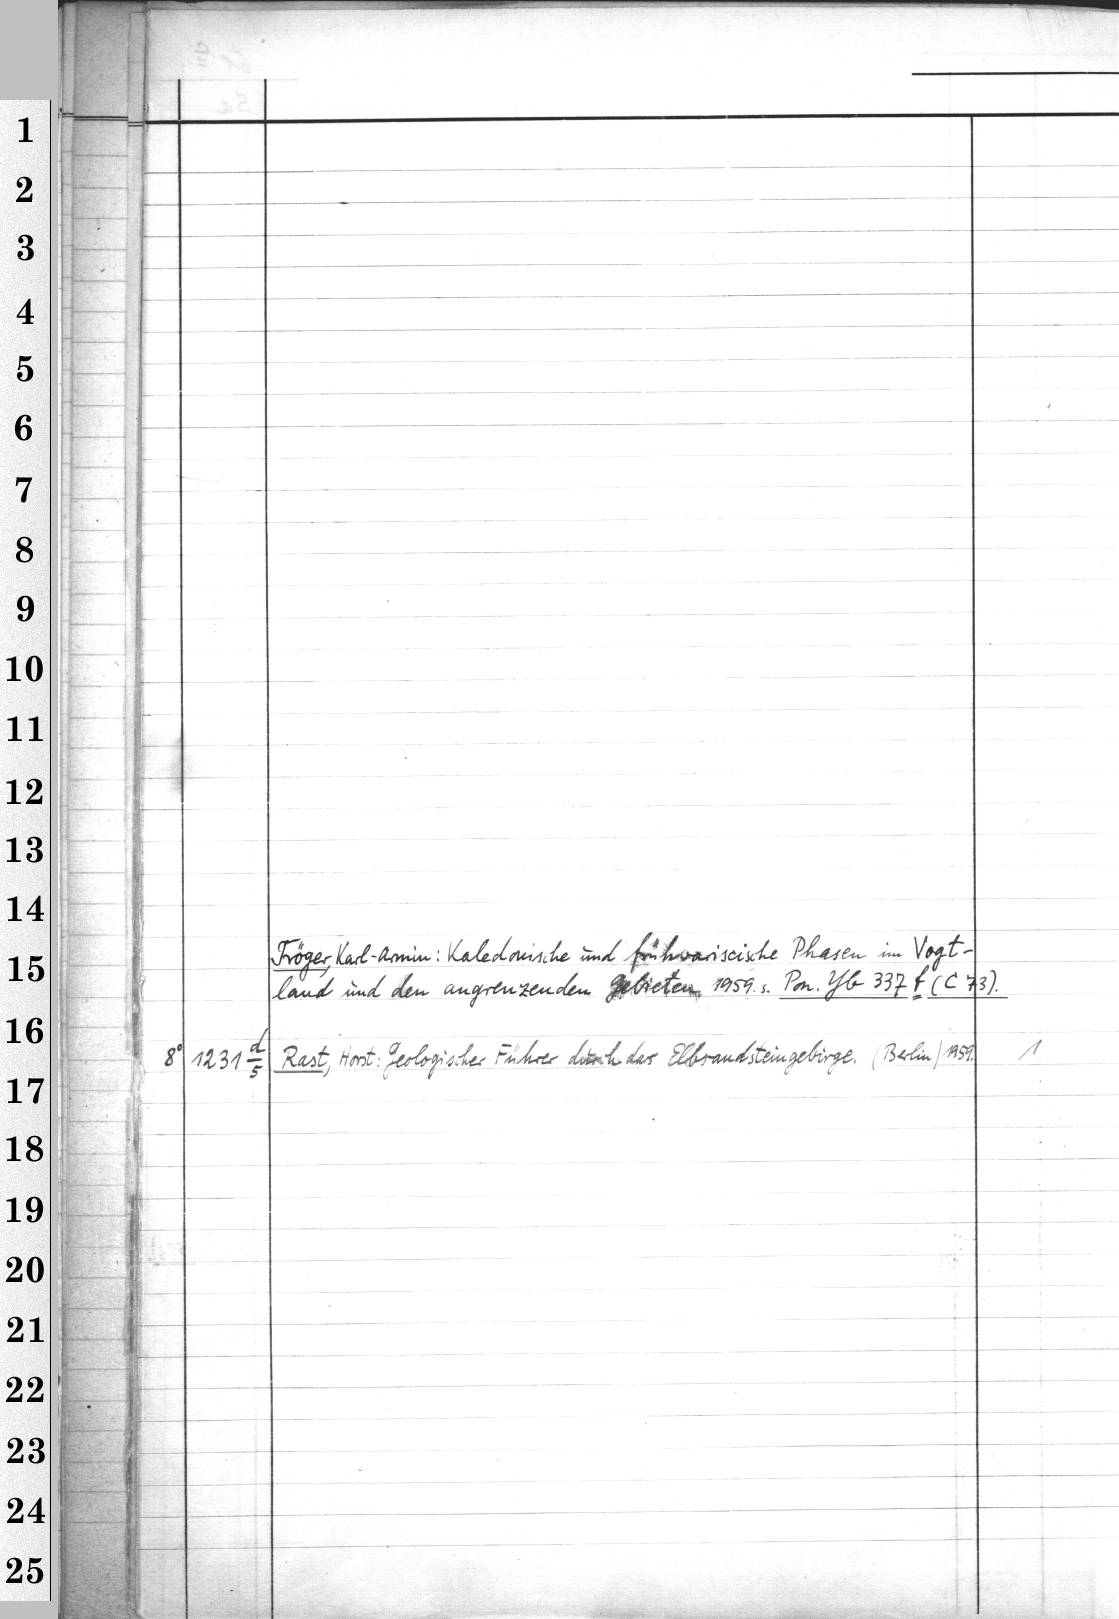 1
2
3
4
5
6
7
8
9
10
11
12
13
14
15
16
17
18
19
20
21
22
23
24
25
Tröger, Karl-Armin: Kaledonische und frühvariscische Phasen im Vogt-
land und den angrenzenden Gebieten 1959. s. Pon. Yb 337 f (C 73).
8° 1231 d/5 Rast, Horst: Geologischer Führer durch das Elbsandsteingebirge. (Berlin) 1959. 1